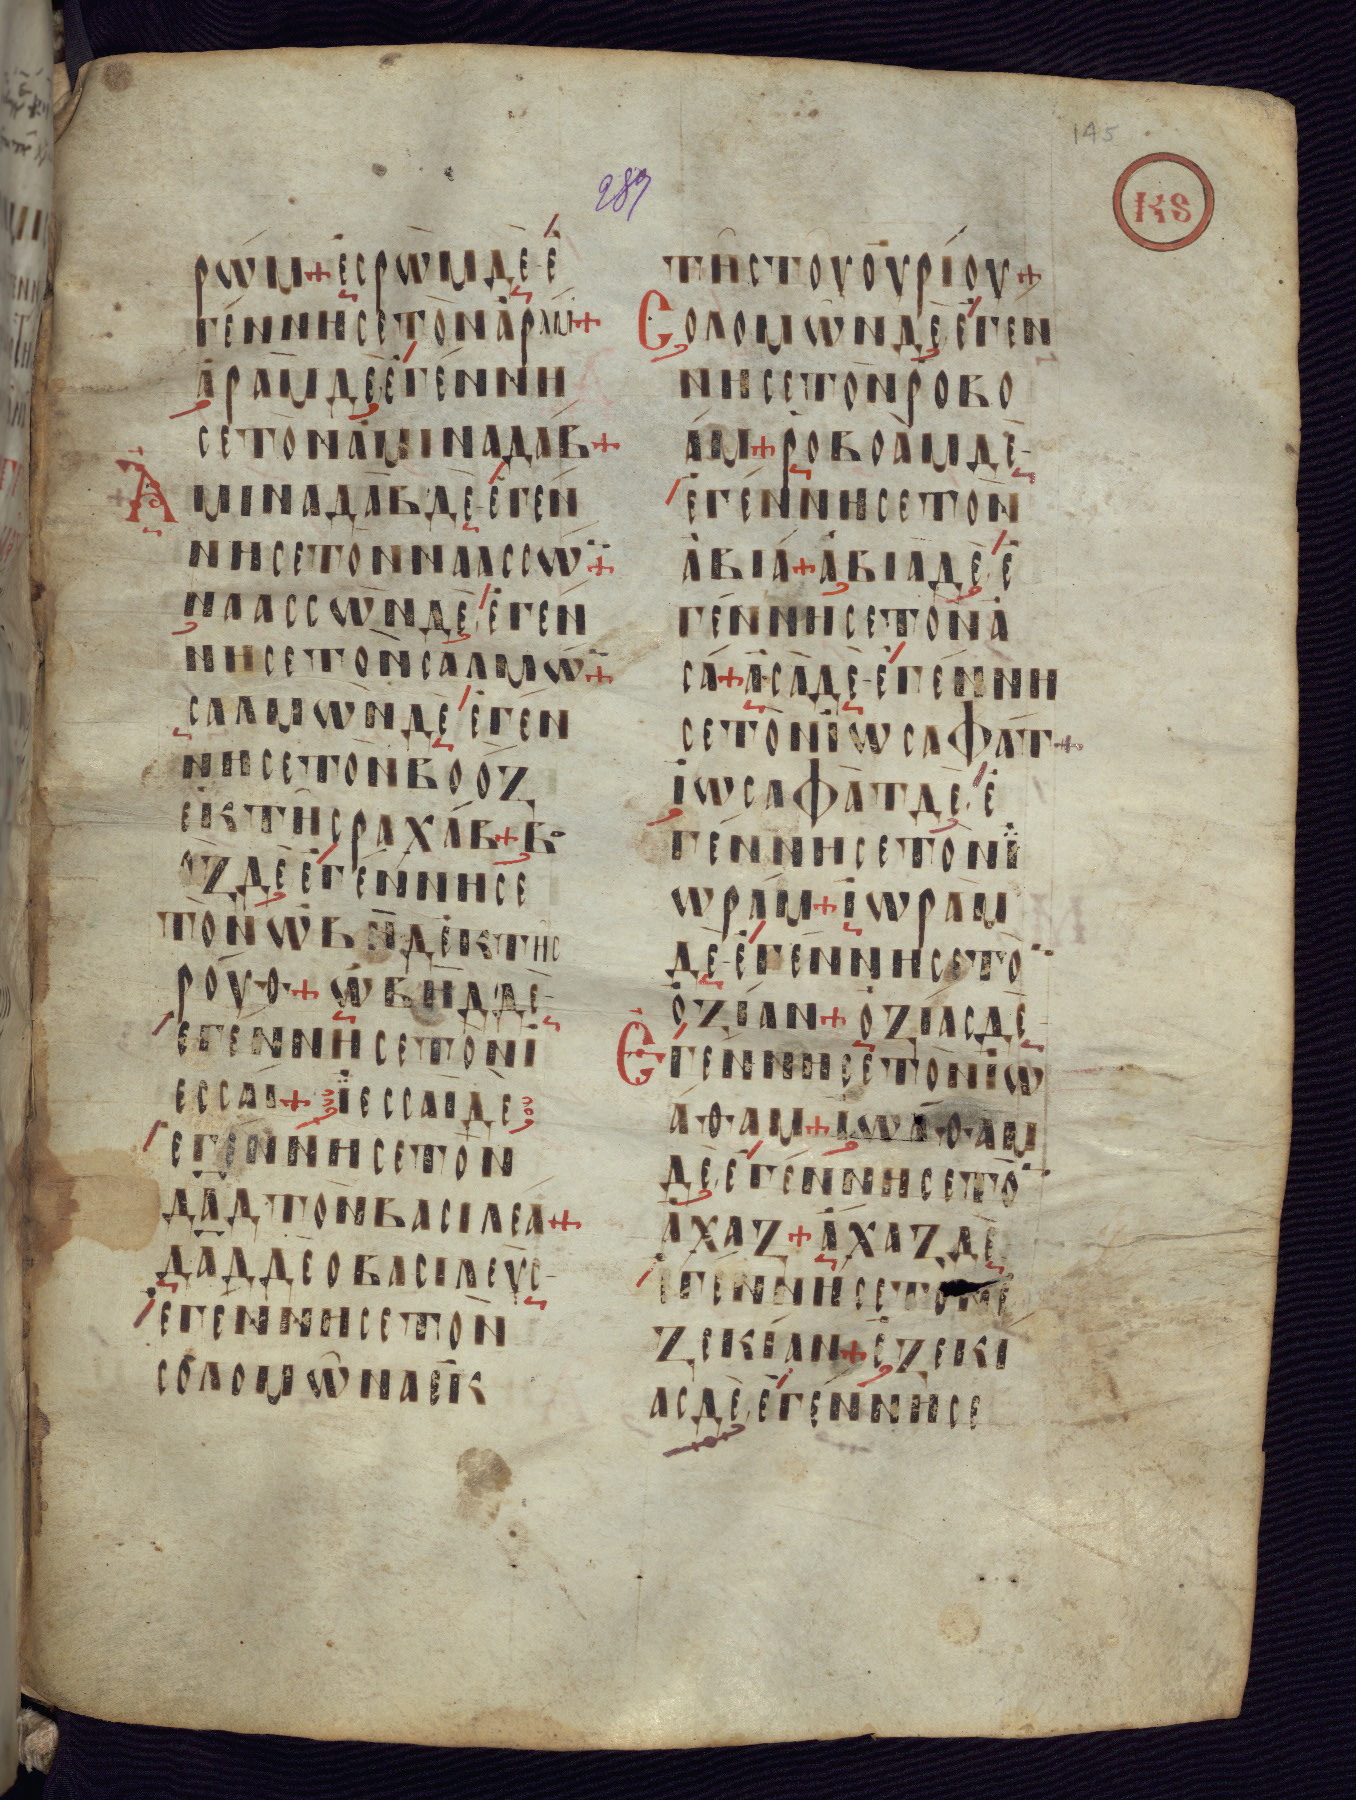 145
289
ΚS
ρωμ+ ἐσρωμ δὲ ἐ
γέννησε τὸν ἀραμ+
ἀραμ δὲ ἐγέννη
σε τὸν ἀμιναδαβ+
Αμιναδαβ δὲ ἐγέν
νησε τὸν ναασσω̅+
νααςςων δὲ ἐγέν
νησε τὸν σαλμω̅+
σαλμων δὲ ἐγέν
νησε τὸν βοοζ
ἐκ τῆς ραχάβ+ βο
οζ δὲ ἐγέννησε
τὸν ὠβηδ ἐκ τῆς
ρουθ+ ὠβηδ δὲ
ἐγέννησε τὸν ἰ
εσσαι+ ἰεσσαι δὲ
ἐγέννησε τὸν
δα̅δ τὸν βασιλέα+
δα̅δ δὲ ο βασιλεὺς
ἐγέννησε τὸν
σολομῶνα ἐκ
τῆς τοῦ οὐρίου+
Σολομὼν δὲ ἐγέν
νησε τὸν ροβο
άμ+ ροβοὰμ δὲ
ἐγέννησε τὸν
ἀβιά+ ἀβιὰ δὲ ἐ
γέννησε τὸν ἀ
σά+ ἀσὰ δὲ ἐγέννη
σε τὸν ἰωσαφάτ+
ἰωσαφὰτ δὲ ἐ
γέννησε τὸν ἰ
ωράμ+ ἰωραμ
δὲ ἐγέννησε το̅
ὀζίαν+ ὀζίας δὲ
Εγέννησε τὸν ἰω
αθαμ+ ἰωαθαμ
δὲ ἐγέννησε το̅
ἀχαζ+ ἀχαζ δὲ
ἐγέννησε τὸν ἐ
ζεκίαν+ ἐζεκί
ας δὲ ἐγέννησε